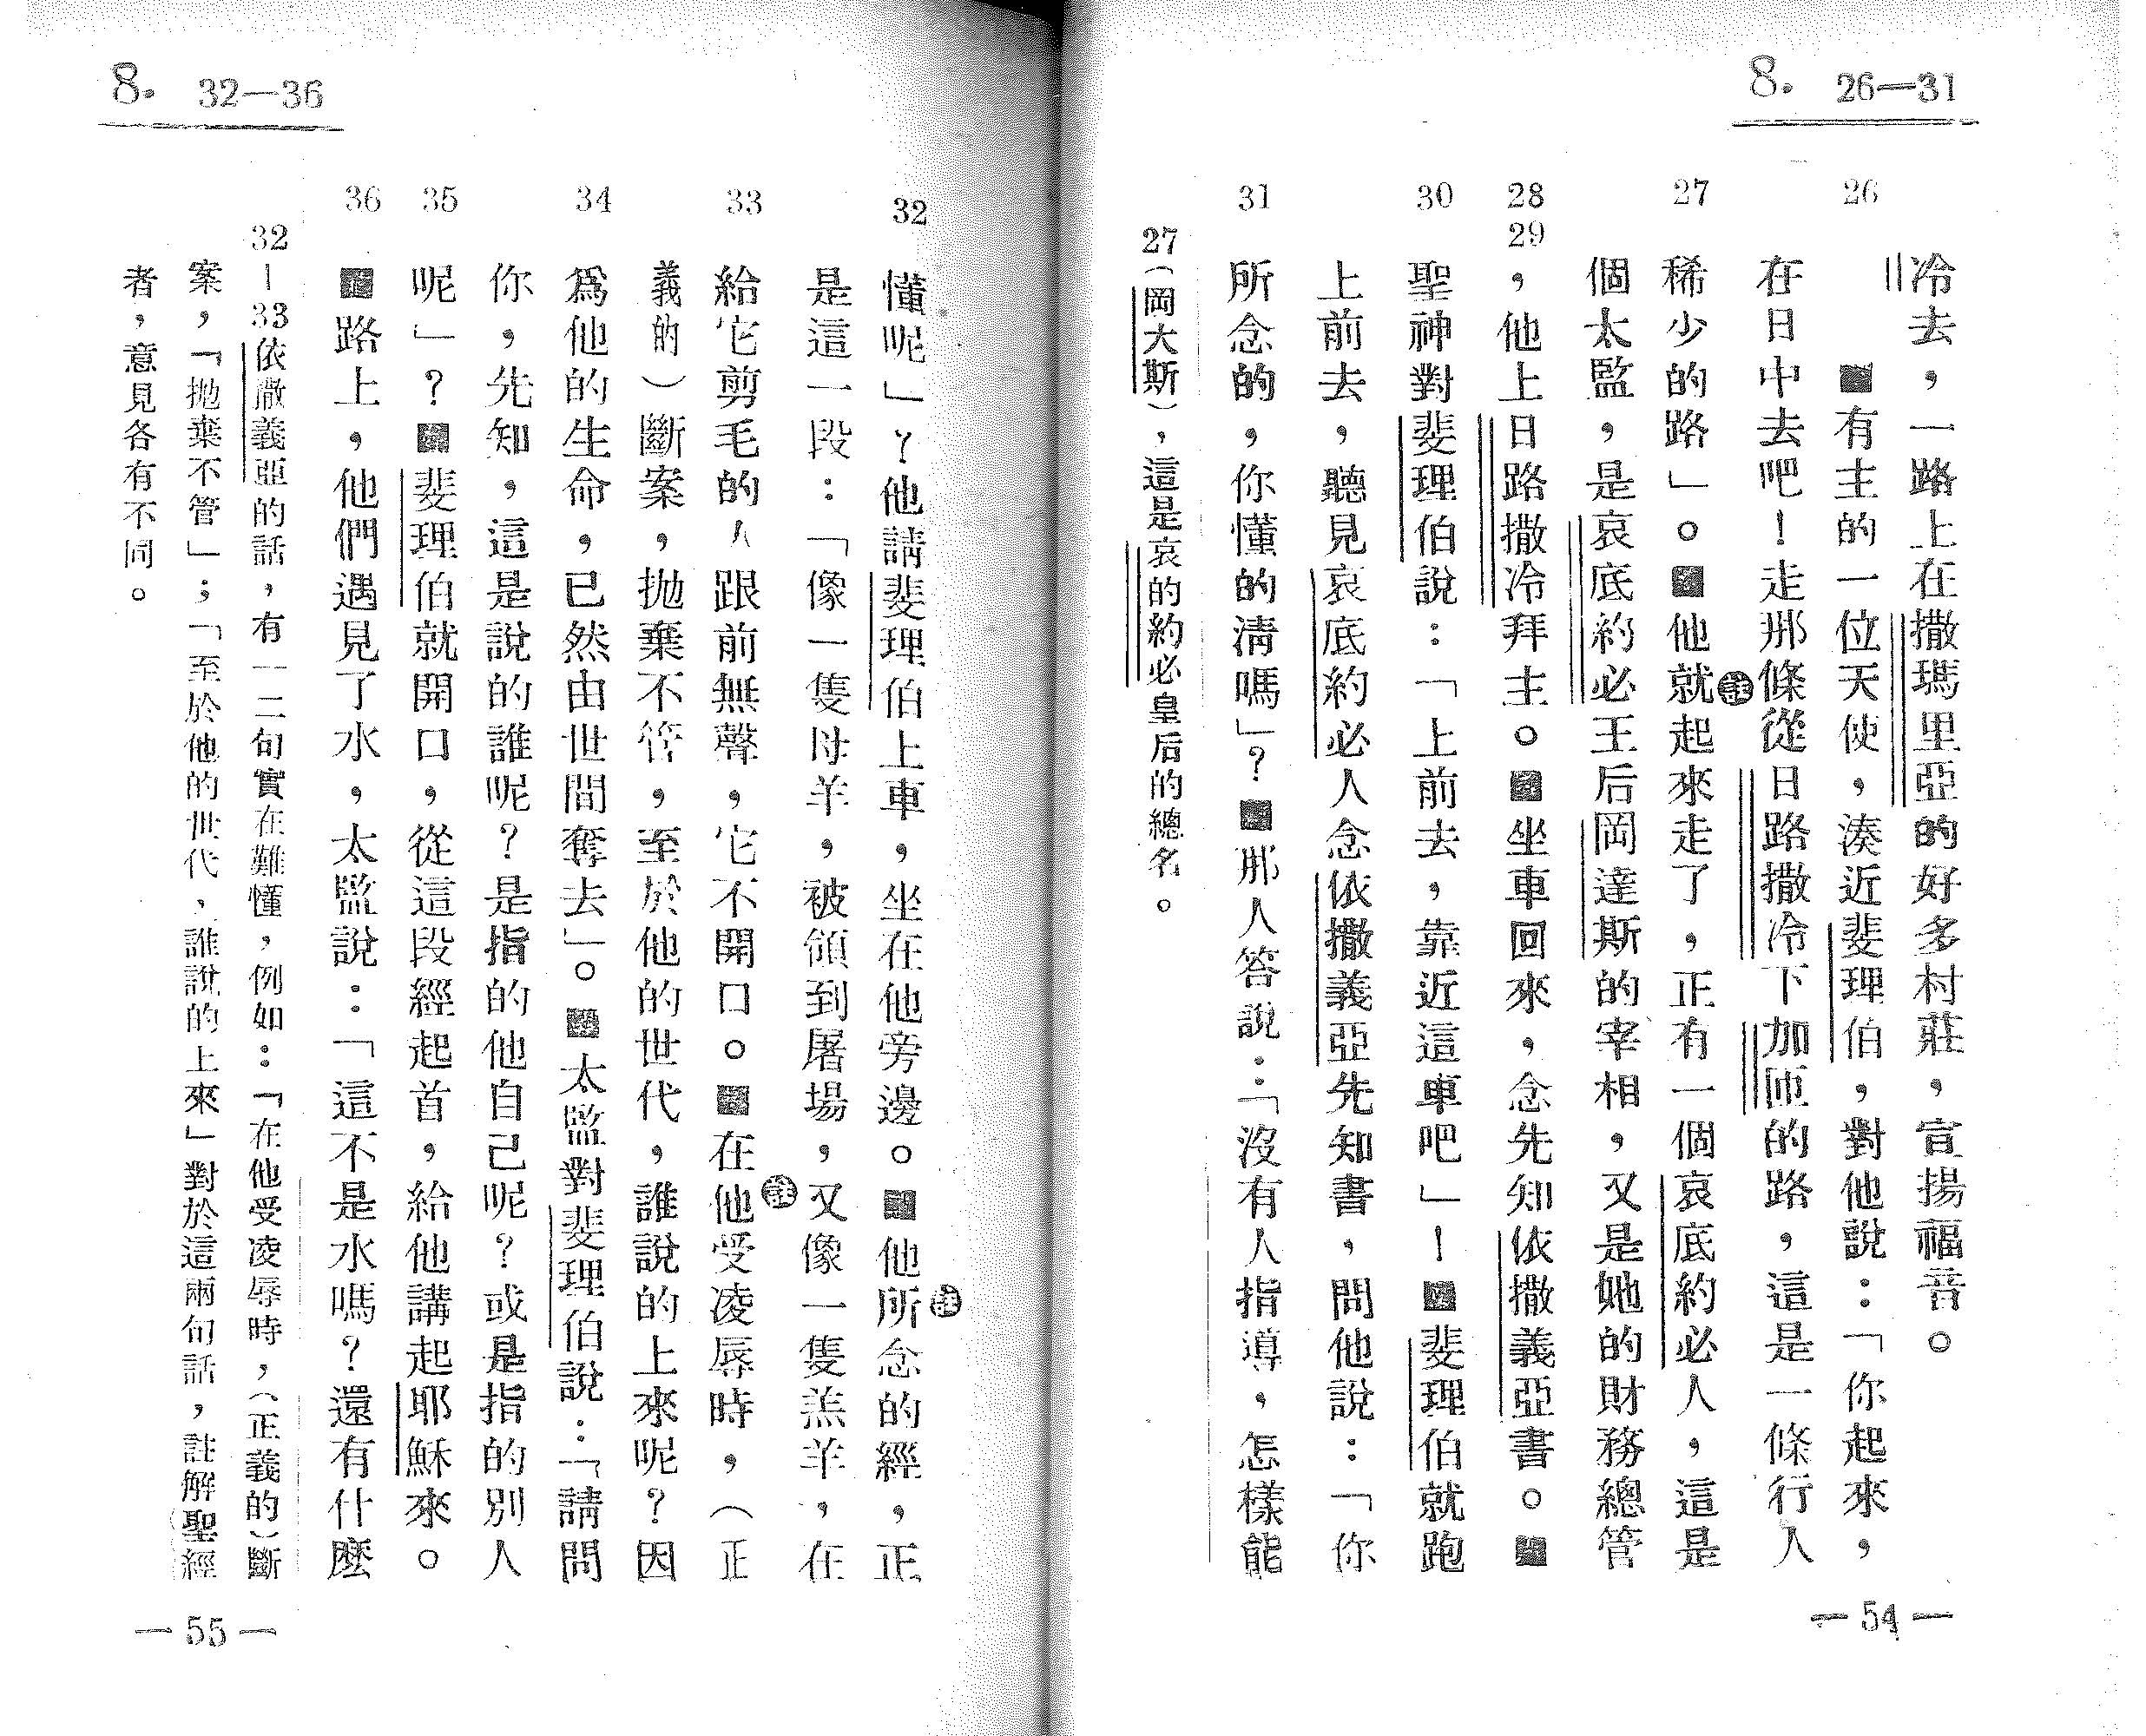 8. 26—31
冷去，一路上在撒瑪里亞的好多村莊，宣揚福音。
26
有主的一位天使，湊近斐理伯，對他說：「你起來，
在日中去吧！走那條從日路撒冷下加匝的路，這是一條行人
27
稀少的路」。他就起來走了，正有一個哀底約必人，這是
註
個太監，是哀底約必王后岡達斯的宰相，又是她的財務總管
28
29
，他上日路撒冷拜主。坐車回來，念先知依撒義亞書。
30
聖神對斐理伯說：「上前去，靠近這車吧」！斐理伯就跑
上前去，聽見哀底約必人念依撒義亞先知書，問他說：「你
31
所念的，你懂的清嗎」？那人答說：「沒有人指導，怎樣能
27（岡大斯），這是哀的約必皇后的總名。
—54—
8. 32—36
32
懂呢」？他請斐理伯上車，坐在他旁邊。他所念的經，正
註
是這一段：「像一隻母羊，被領到屠場，又像一隻羔羊，在
33
給它剪毛的人跟前無聲，它不開口。在他受凌辱時，（正
註
義的）斷案，拋棄不管，至於他的世代，誰說的上來呢？因
34
爲他的生命，已然由世間奪去」。太監對斐理伯說：「請問
你，先知，這是說的誰呢？是指的他自己呢？或是指的別人
35
呢」？斐理伯就開口，從這段經起首，給他講起耶穌來。
36
路上，他們遇見了水，太監說：「這不是水嗎？還有什麽
32—33依撒義亞的話，有一二句實在難懂，例如：「在他受凌辱時，（正義的）斷
案，「拋棄不管」；「至於他的世代，誰說的上來」對於這兩句話，註解聖經
者，意見各有不同。
—55—